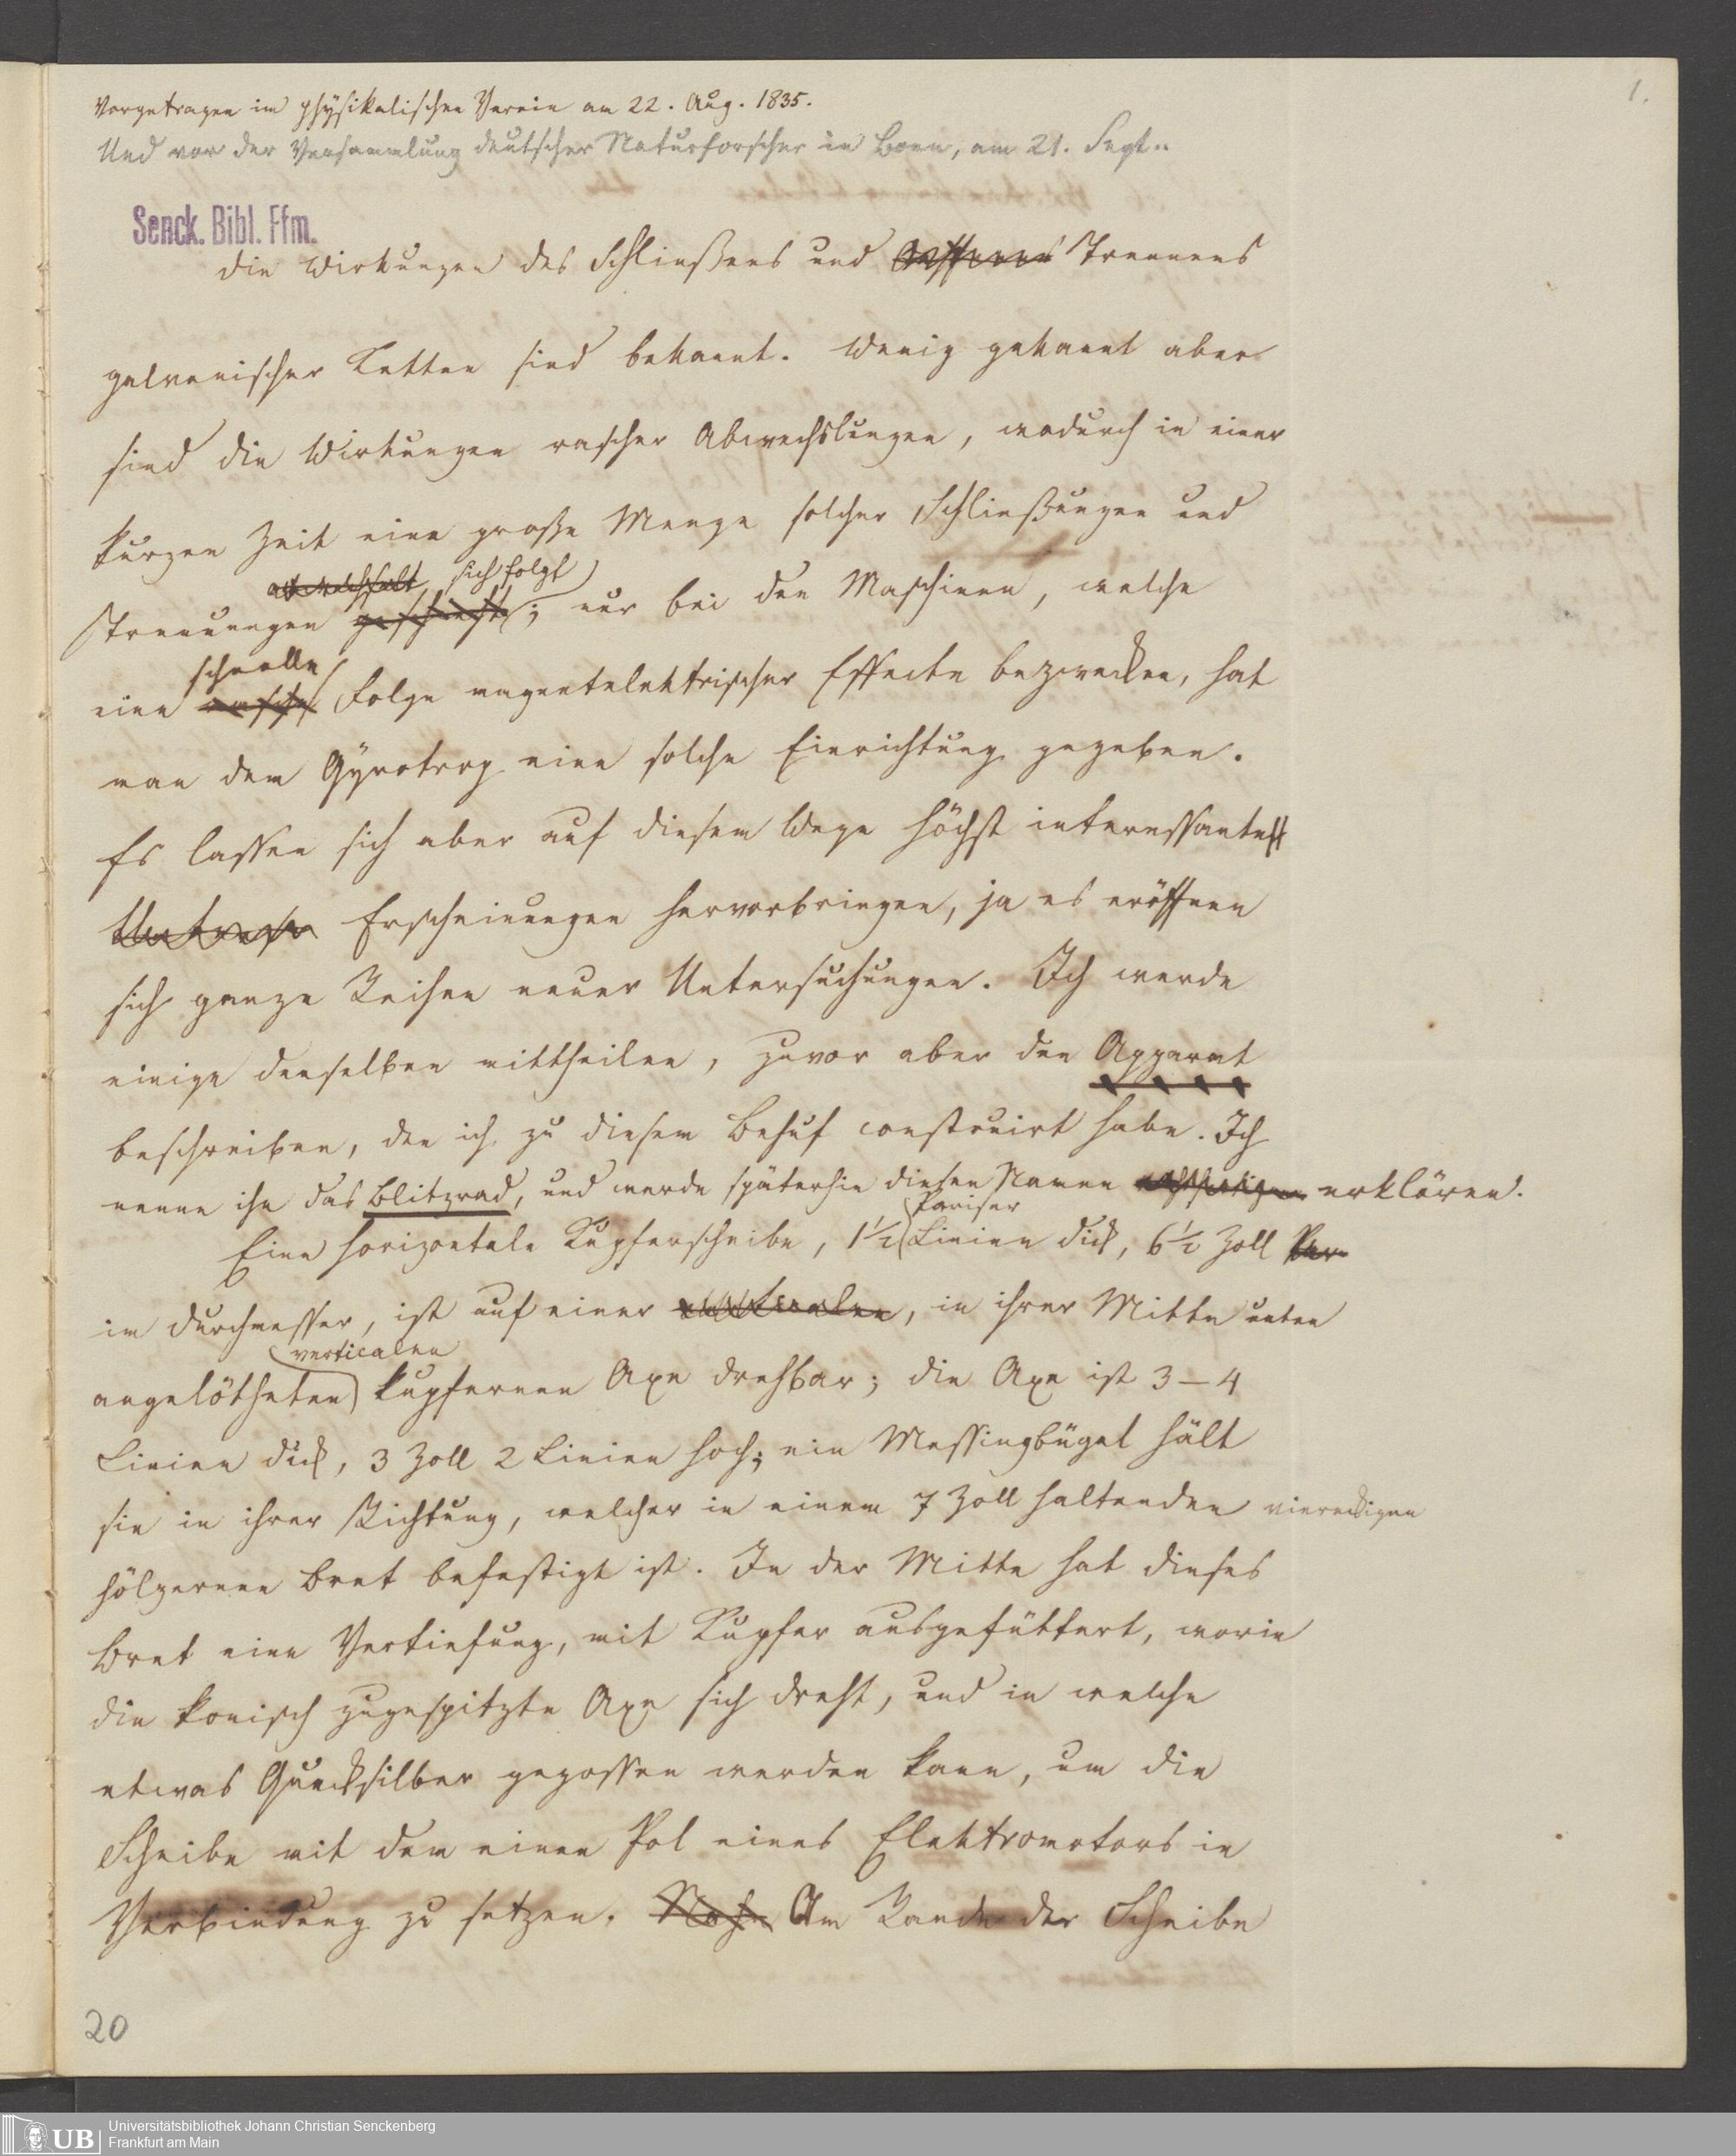 1.
Vorgetragen im physikalischen Verein am 22. Aug. 1835.
Und vor der Versammlung deutscher Naturforscher in Bonn, am 21. Sept.
Senck. Bibl. Ffm.
Die Wirkungen des Schließens und Oeffnens Trennens
galvanischer Ketten sind bekannt. Wenig gekannt aber
sind die Wirkungen rascher Abwechslungen, wodurch in einer
kurzen Zeit eine große Menge solcher Schließungen und
abwechselt sich folgt
Trennungen geschieht; nur bei den Maschinen, welche
schnelle
eine rasche Folge magnetelektrischer Effecte bezwecken, hat
man dem Gyrotrop eine solche Einrichtung gegeben.
Es lassen sich aber auf diesem Wege höchst interessante
Erscheinungen hervorbringen, ja es eröffnen
sich ganze Reihen neuer Untersuchungen. Ich werde
einige derselben mittheilen, zuvor aber den Apparat
beschreiben, den ich zu diesem Behuf construirt habe. Ich
nenne ihn das Blitzrad, und werde späterhin diesen Namen rechtfertigen erklären.
Pariser
Eine horizontale Kupferscheibe, 1½ Linien dick, 6½ Zoll Par
im Durchmesser, ist auf einer verticalen, in ihrer Mitte unten
verticalen
angelötheten kupfernen Axe drehbar; die Axe ist 3–4
Linien dick, 3 Zoll 2 Linien hoch; ein Messingbügel hält
sie in ihrer Richtung, welcher in einem 7 Zoll haltenden viereckigen
hölzernen Bret befestigt ist. In der Mitte hat dieses
Bret eine Vertiefung, mit Kupfer ausgefüttert, worin
die konisch zugespitzte Axe sich dreht, und in welche
etwas Quecksilber gegossen werden kann, um die
Scheibe mit dem einen Pol eines Elektromotors in
Verbindung zu setzen. Nahe Am Rande der Scheibe
20
UB
Universitätsbibliothek Johann Christian Senckenberg
Frankfurt am Main